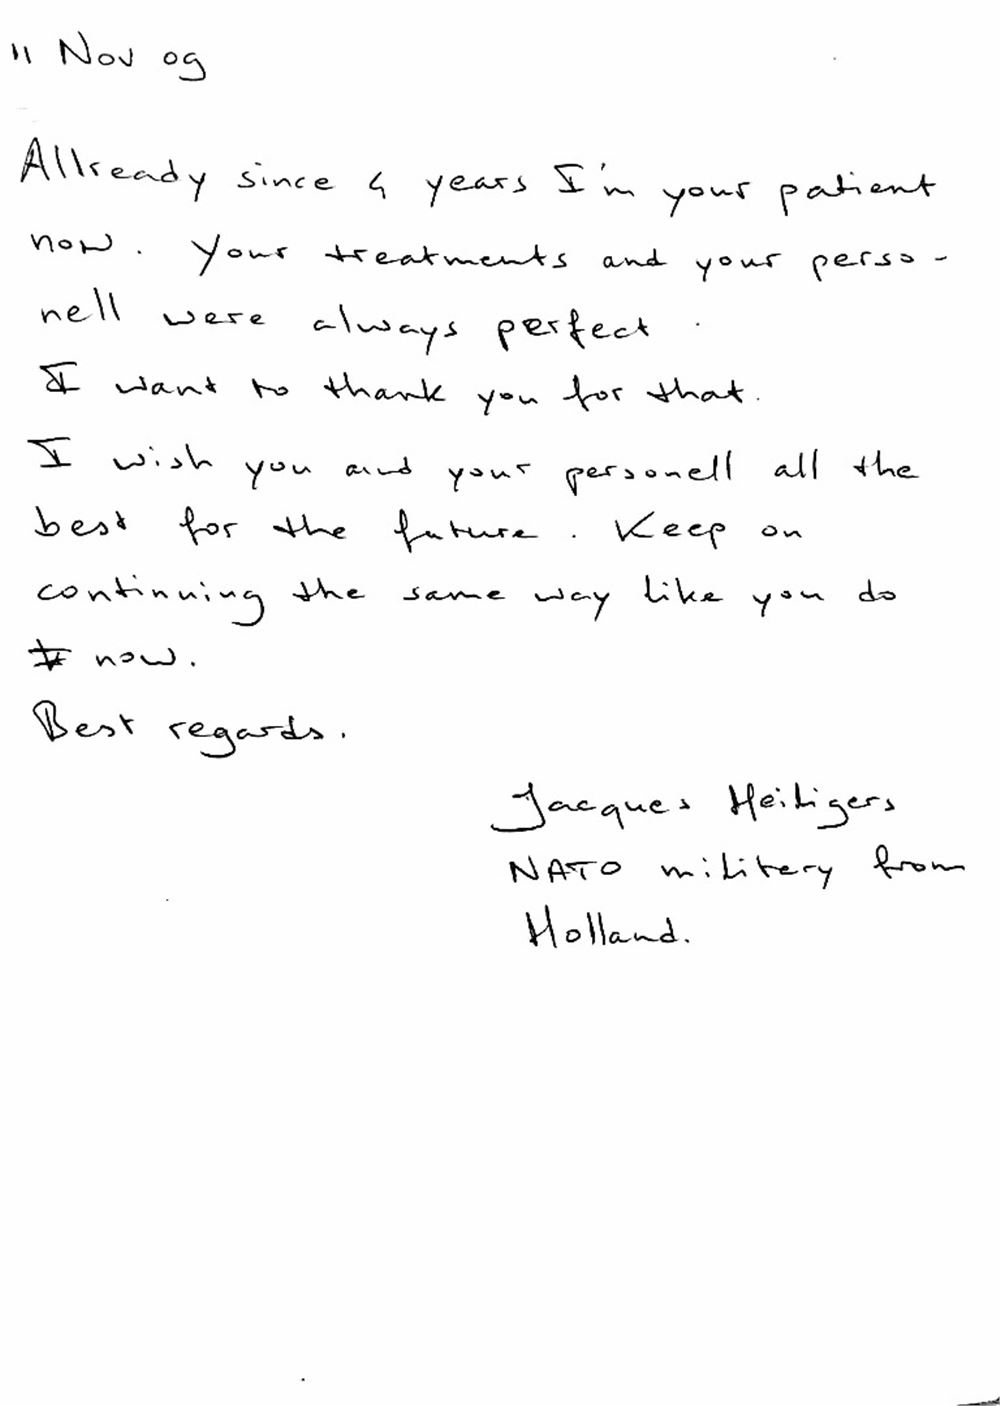 11 Nov 09
Allready since 4 years I'm your patient
now. Your treatments and your perso-
nell were always perfect.
I want to thank you for that.
I wish you and your personell all the
best for the future. Keep on
continuing the same way like you do
now.
Best regards.
Jacques Heiligers
NATO militery from
Holland.